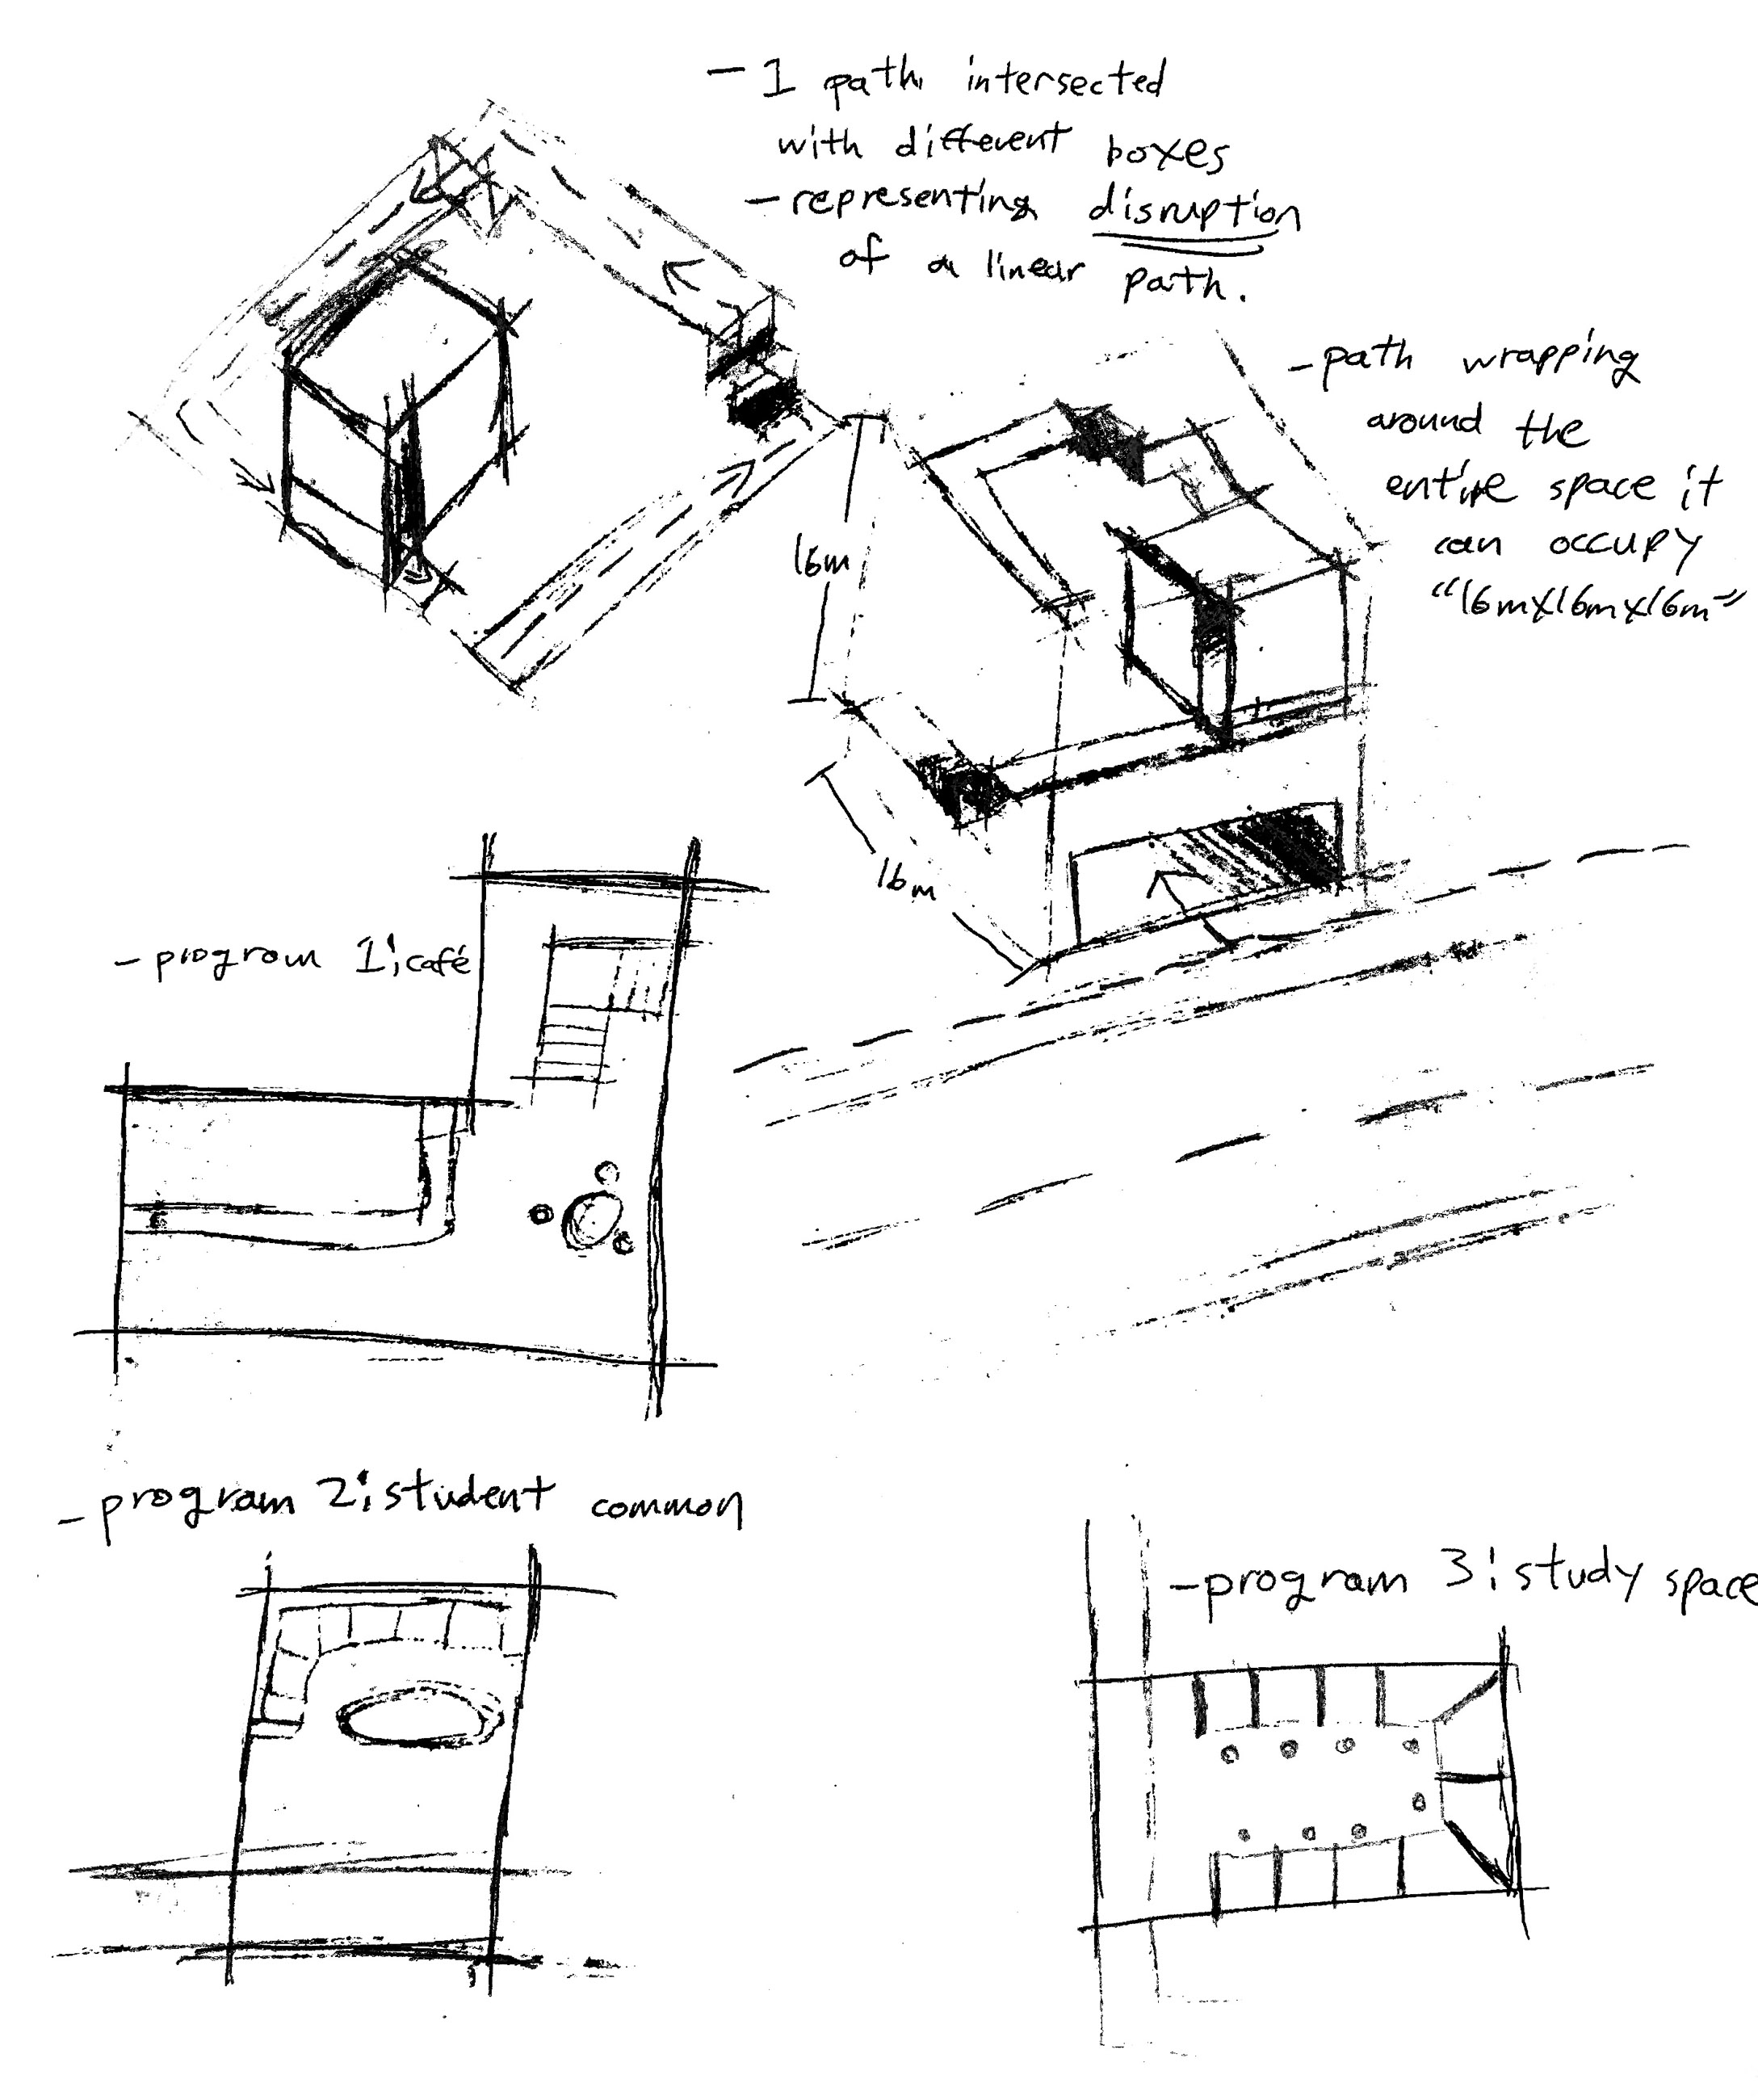 - 1 path intersected
with different boxes
- representing disruption
of a linear path.
- path wrapping
around the
entire space it
can occupy
"16mx16mx16m"
16m
16m
- program 1: café
- program 2: student common
- program 3: study space